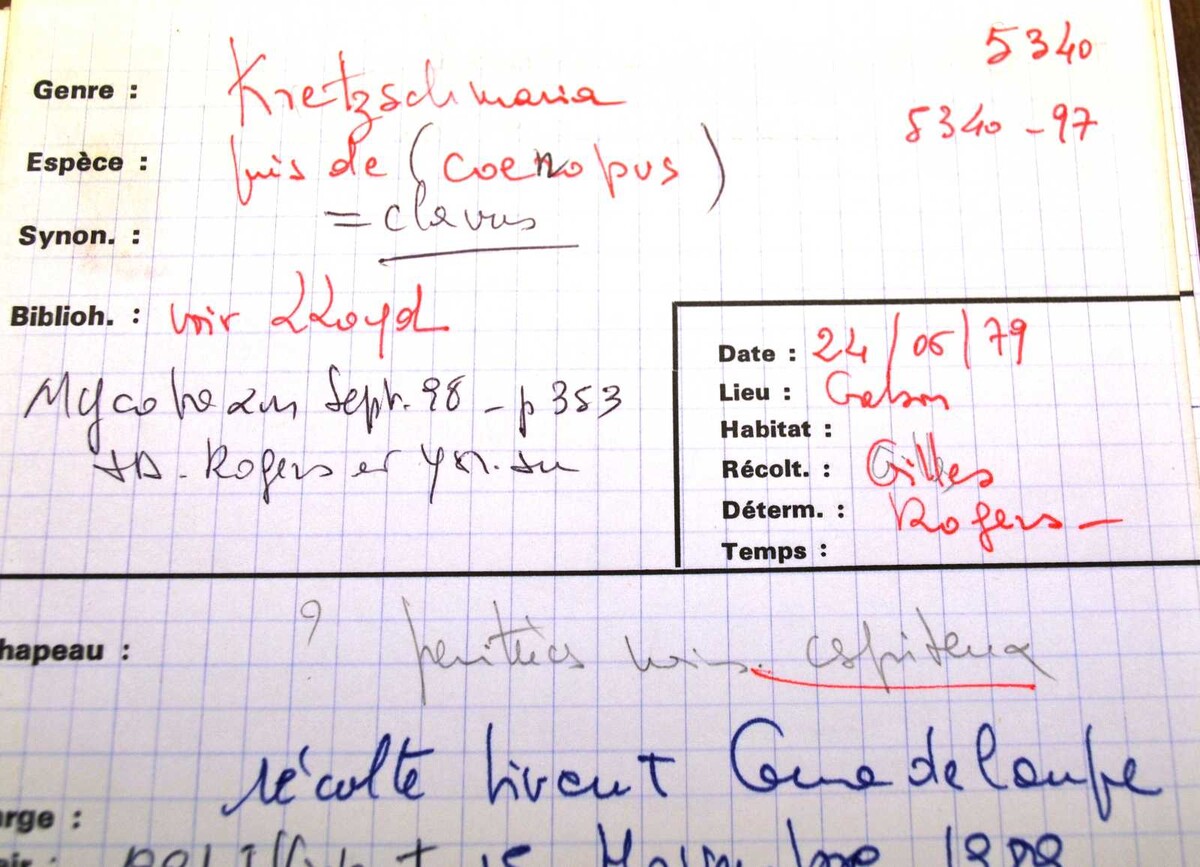 5340
Genre : Kretzschmaria
5340 - 97
Espèce : près de (coenopus)
= clavus
Synon. :
Biblioh. : voir LLoyd
Mycotaxon Sept. 98 - p 353
JD. Rogers et YM. Ju
Date : 24/05/79
Lieu : Gabon
Habitat :
Récolt. : Gilles
Déterm. : Rogers -
Temps :
hapeau : ? perithèces noirs cespiteux
récolte vivant Guadeloupe
arge :